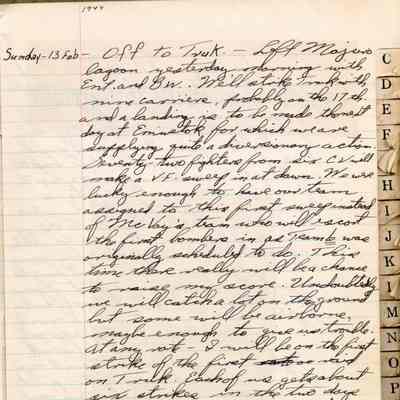 1944
Sunday - 13 Feb - Off to Truk. - Left Majuro
lagoon yesterday morning with
Ent. and B.W.. We'll strike Truk with
nine carriers, probably on the 17th.
and a landing is to be made the next
day at Eniwetok for which we are
supplying quite a diversionary action.
Seventy two fighters from six CV will
make a VF sweep in at dawn. We were
lucky enough to have our team
assigned to this first sweep instead
of McVay's team who will escort
the first bombers in as team was
originally scheduled to do. This
time there really will be a chance
to raise my score. Undoubtedly
we will catch a lot on the ground
but some will be airborne,
maybe enough to give us trouble.
At any rate - I will be on the first
strike of the first raid
on Truk. Each of us gets about
six strikes in the two days
C
D
E
F
H
I
J
K
L
M
N
O
P